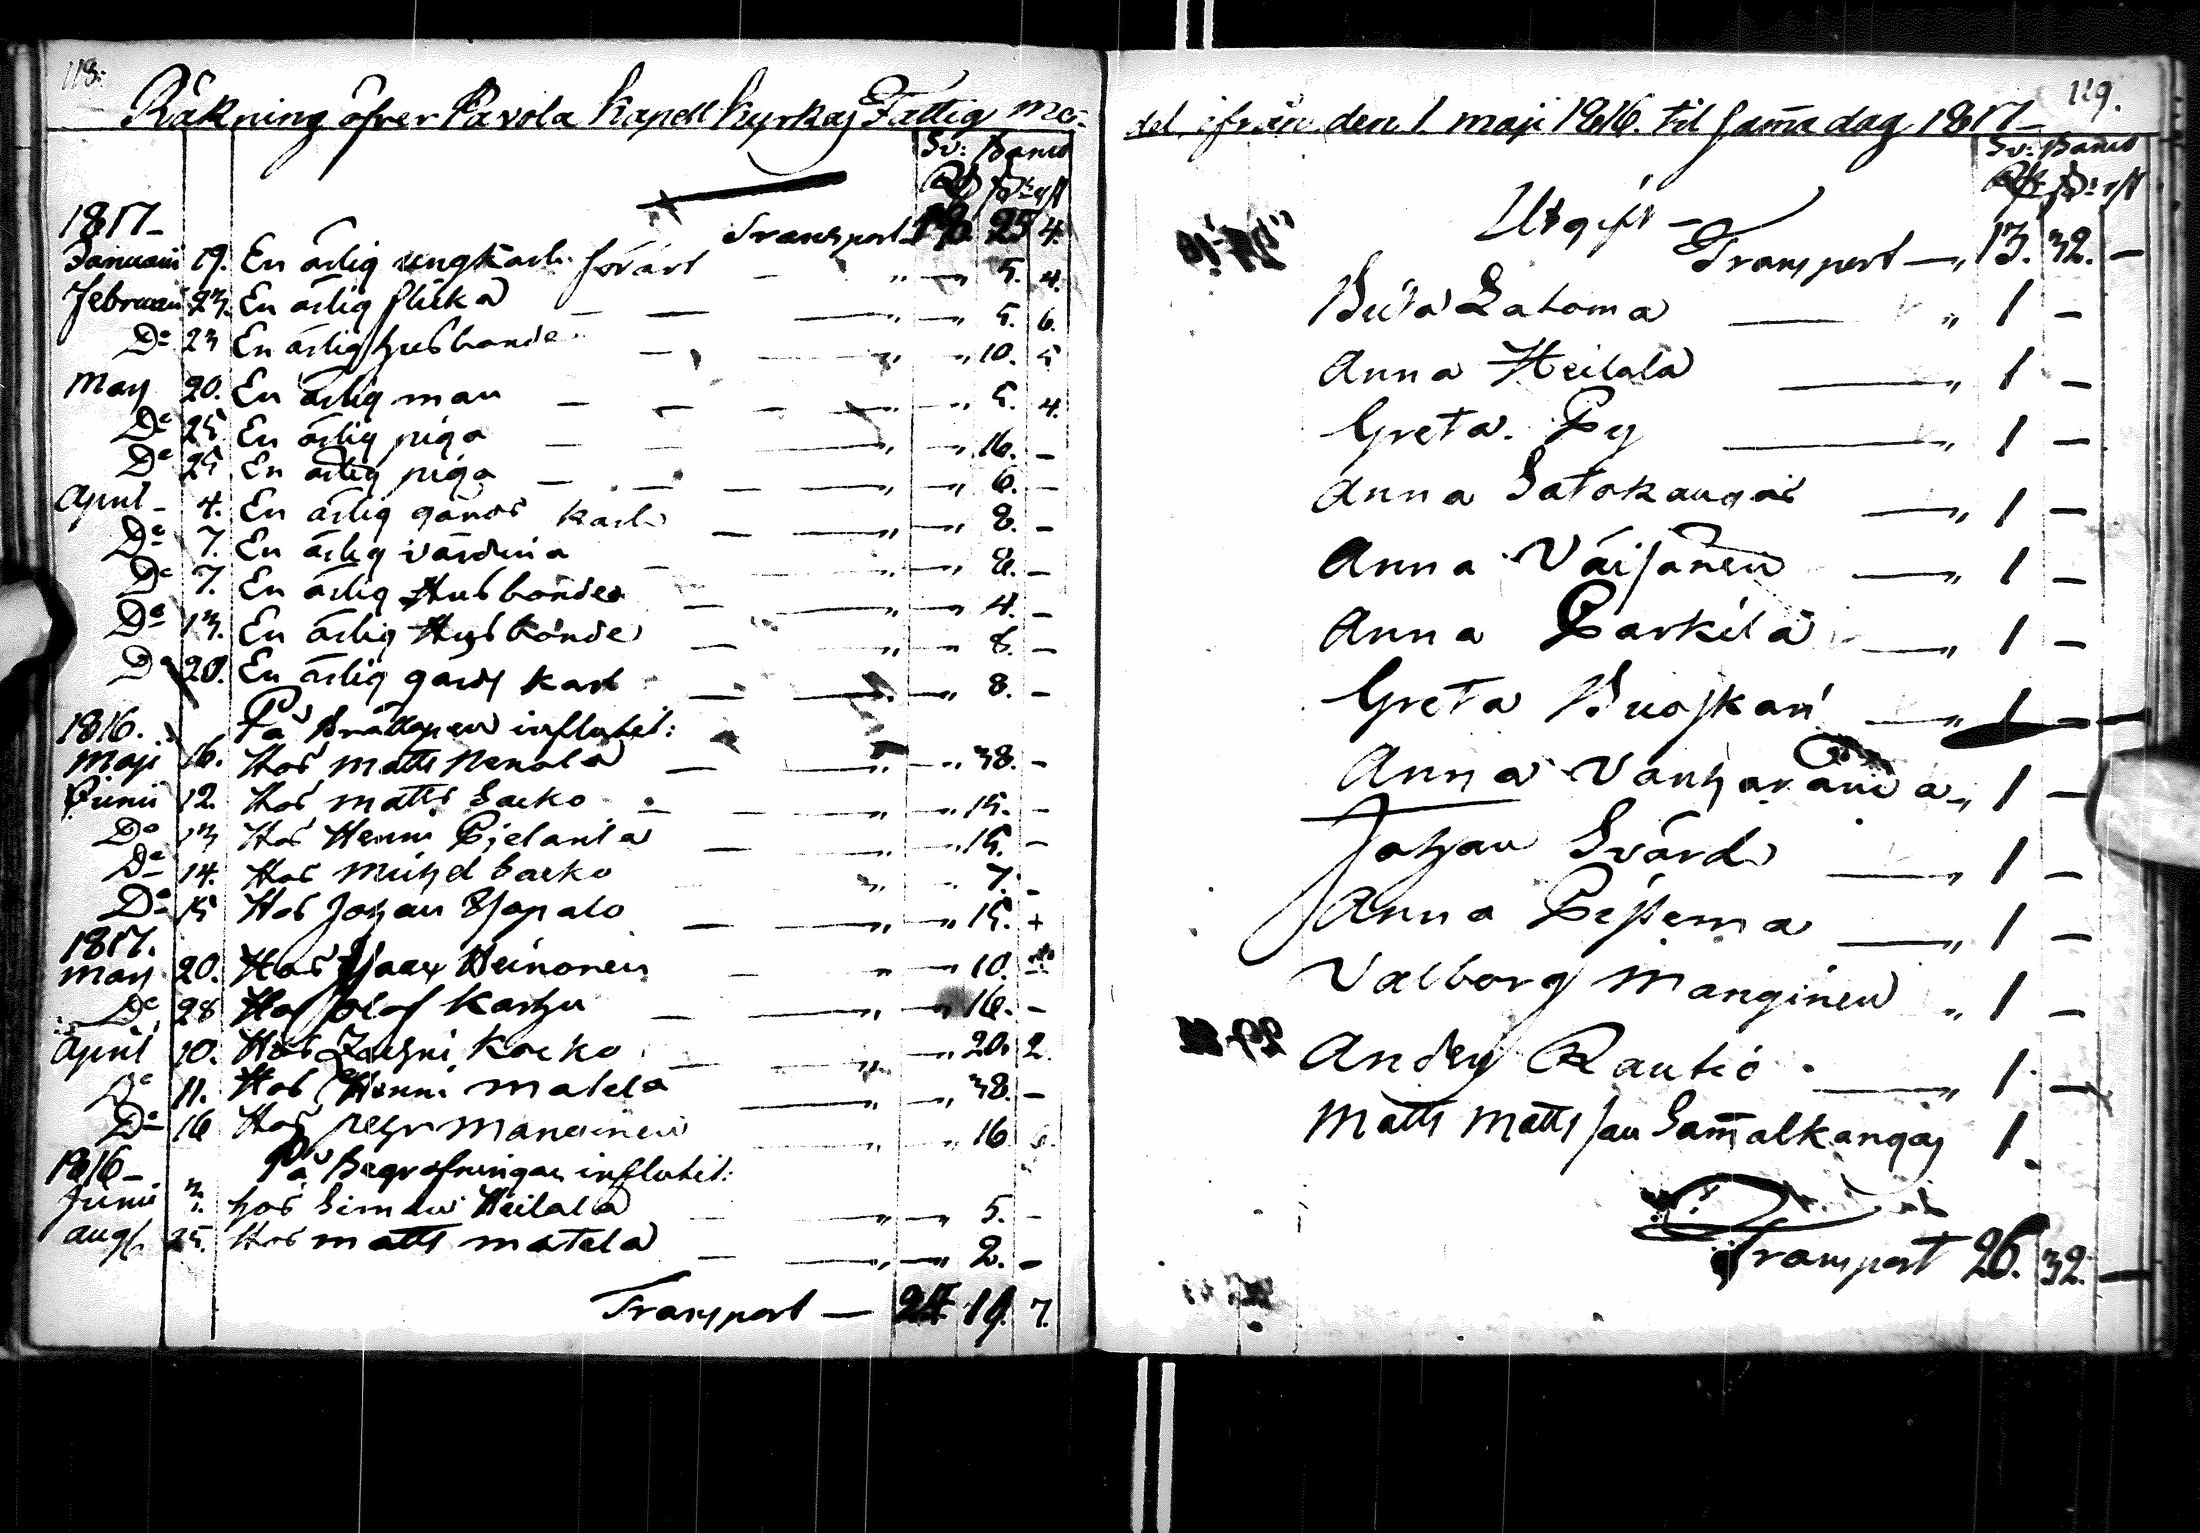 118.
Räkning öfver Pavola Kapell Kyrkas Fattig Me-
Sv: Banco
Rd s: rst
1817-
Transport 18 25 4.
Januarii 19. En ärlig ungkarl förärt — „ — 5. 4.
Februarii 23. En ärlig flicka — — — „ — 5. 6.
Do 23 En ärlig husbonde — „ „ 10. 5
Mars 20. En ärlig man — — — — „ — „ 5. 4.
Do 25. En ärlig piga — — — „ — „ 16. —
Do 25 En ärlig piga — — — — „ — „ 6. —
April — 4. En ärlig gårds karl — — „ — „ 8. —
Do 7. En ärlig värdina — — „ — „ 8. —
Do 7. En ärlig Husbonde — — „ — „ 4. —
Do 13. En ärlig Husbonde — — „ — „ 8. —
Do 20. En ärlig gårds karl — — „ — „ 8. —
1816. På Bröllopen influtit:
Maji 16. Hos Matts Nenola — — „ — „ 38. —
Junii 12. Hos Matts Saeko — „ — „ 15. —
Do 13 Hos Henric Pielanla — — „ — „ 15. —
Do 14. Hos Michel Saeko „ „ 7. —
Do 15 Hos Johan Ylöpalo — — „ — „ 15. +
1817.
Mars 20. Hos Isaac Heinonen — „ — 10.
Do 28 Hos Olof Karhu — — „ — „ 16. —
April 10. Hos Zachri Koeko — „ — „ 20. 2.
Do 11. Hos Henric Matela — „ — „ 38. —
Do 16 Hos Petr Manninen — „ — „ 16 6.
1816 — På Begrafningar influtit:
Junii 3. hos Simon Heilala — „ — „ 5. —
Aug 25. Hos Matts Matela — — „ — „ 2. —
Transport — 24 19. 7.
119.
del ifrån den 1. maji 1816. til samma dag 1817 —
Sv: Banco
Rd s: rst
Utgift —
Transport — „ 13. 32. —
Brita Lahoma — „ 1 —
Anna Heilala — „ 1 —
Greta. Py — „ 1 —
Anna Satokangas — „ 1 —
Anna Väisänen — „ 1 —
Anna Parkila — „ 1 —
Greta Buoskari — „ 1 —
Anna Vanharanda „ 1 —
Johan Svärd — „ 1 —
Anna Pepema — „ 1 —
Valborg Manginen „ 1 —
Anders Rautio — „ 1 —
Matts Mattsson Sam̄alkangas 1
Transport 26. 32. —